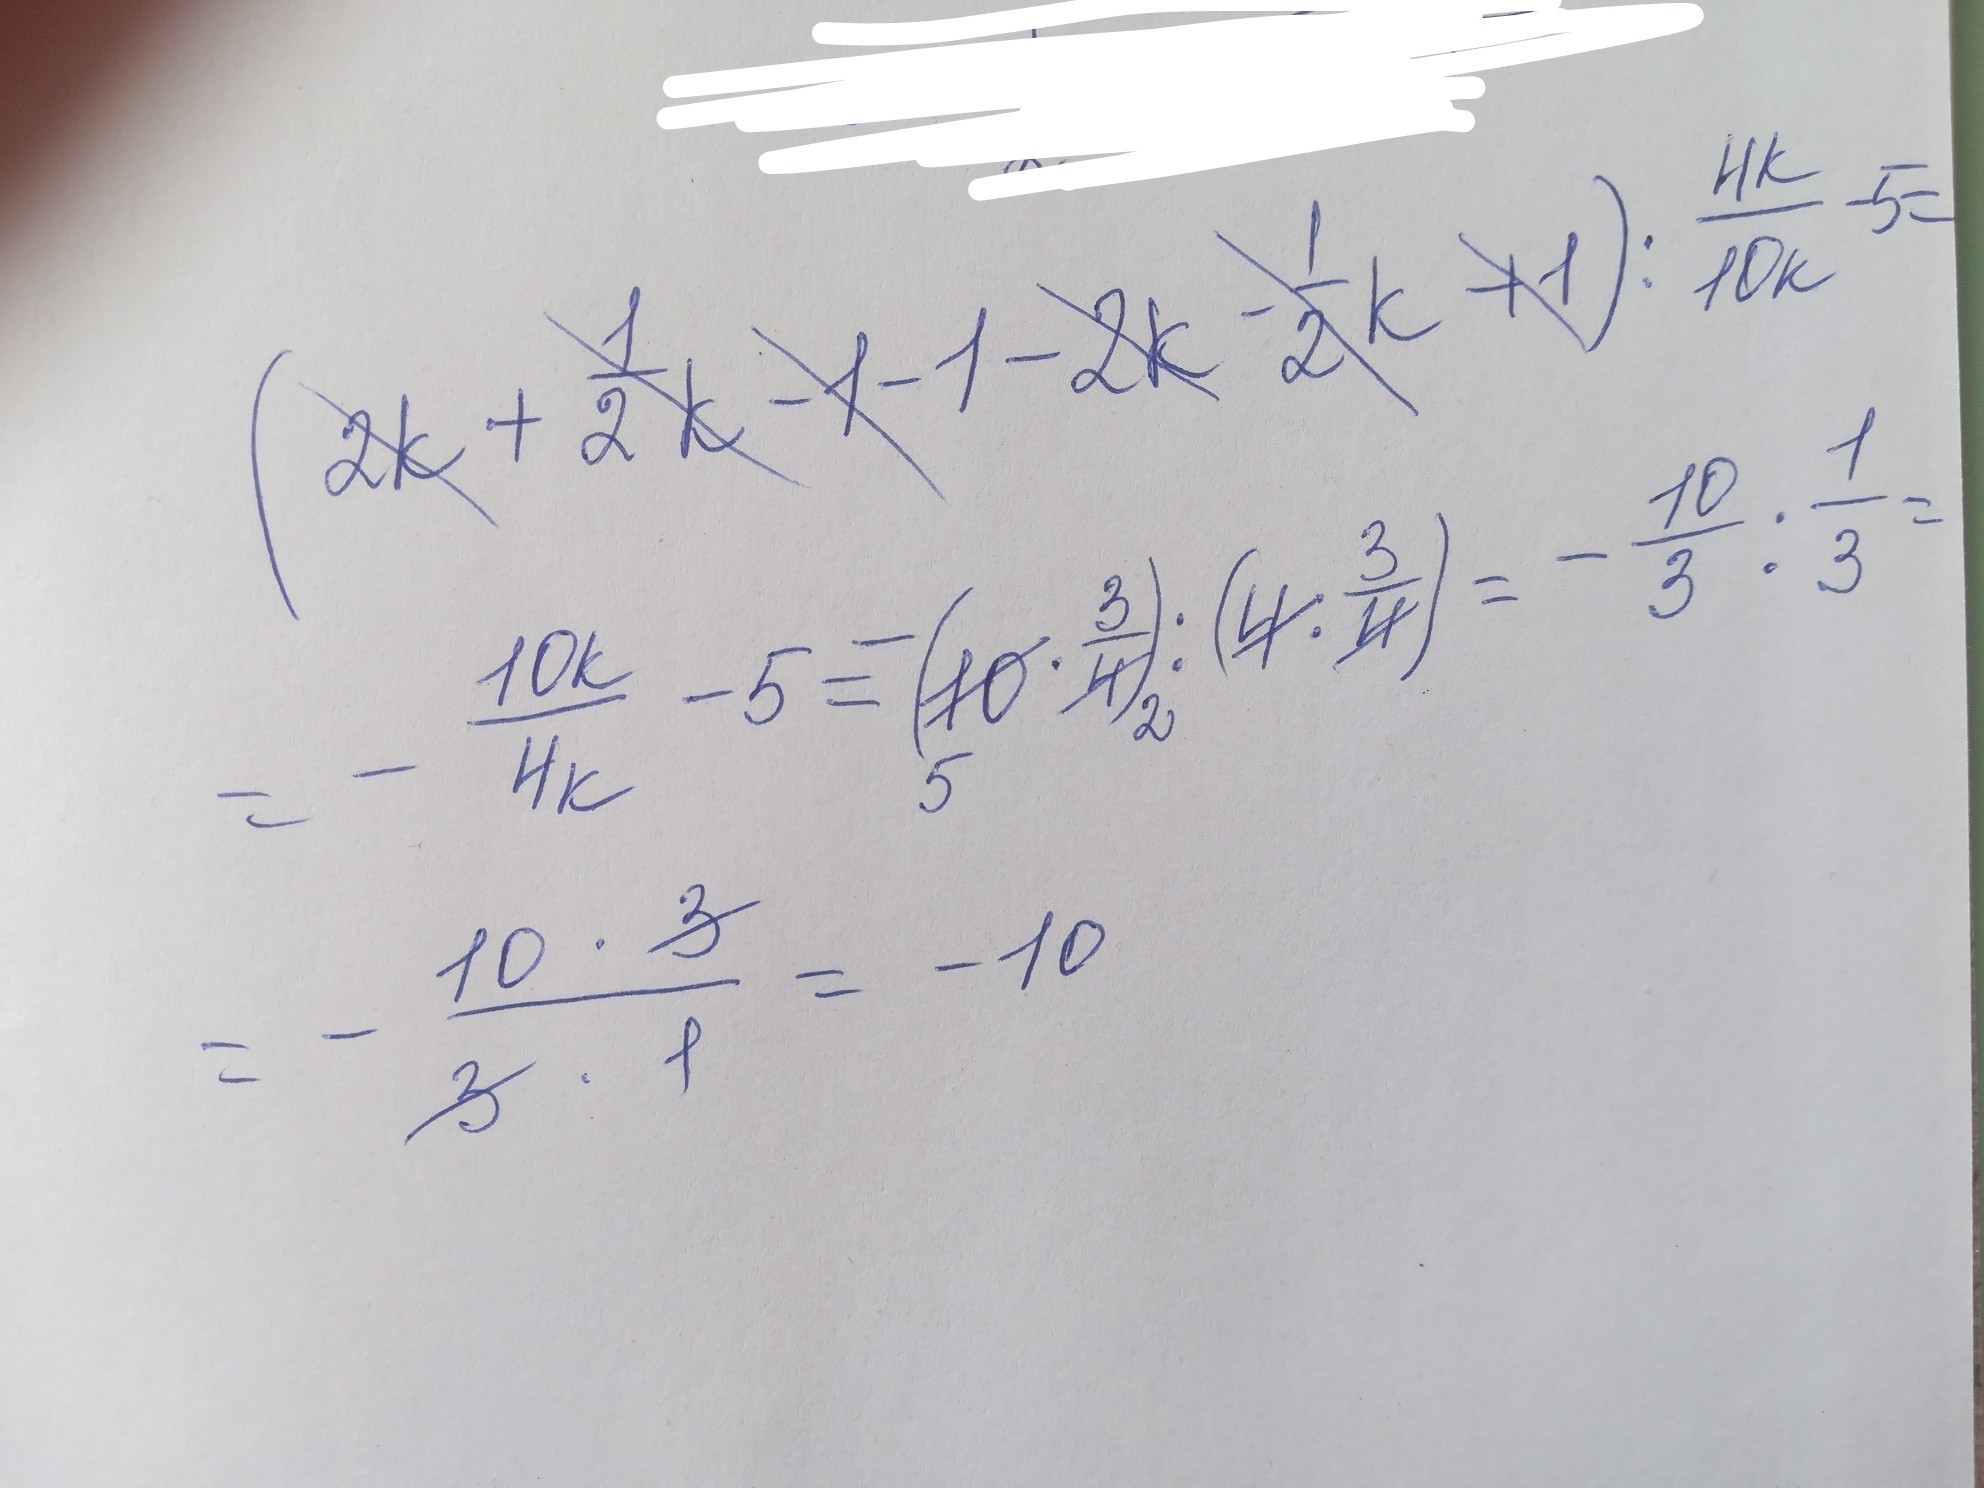 (2k + 1/2 k - 1 - 1 - 2k - 1/2 k + 1) : 4k/10k - 5 =
= - 10k/4k - 5 = - (10 · 3/4) : (4 · 3/4) = - 10/3 : 1/3 =
5 2
= - 10 · 3 / 3 · 1 = - 10